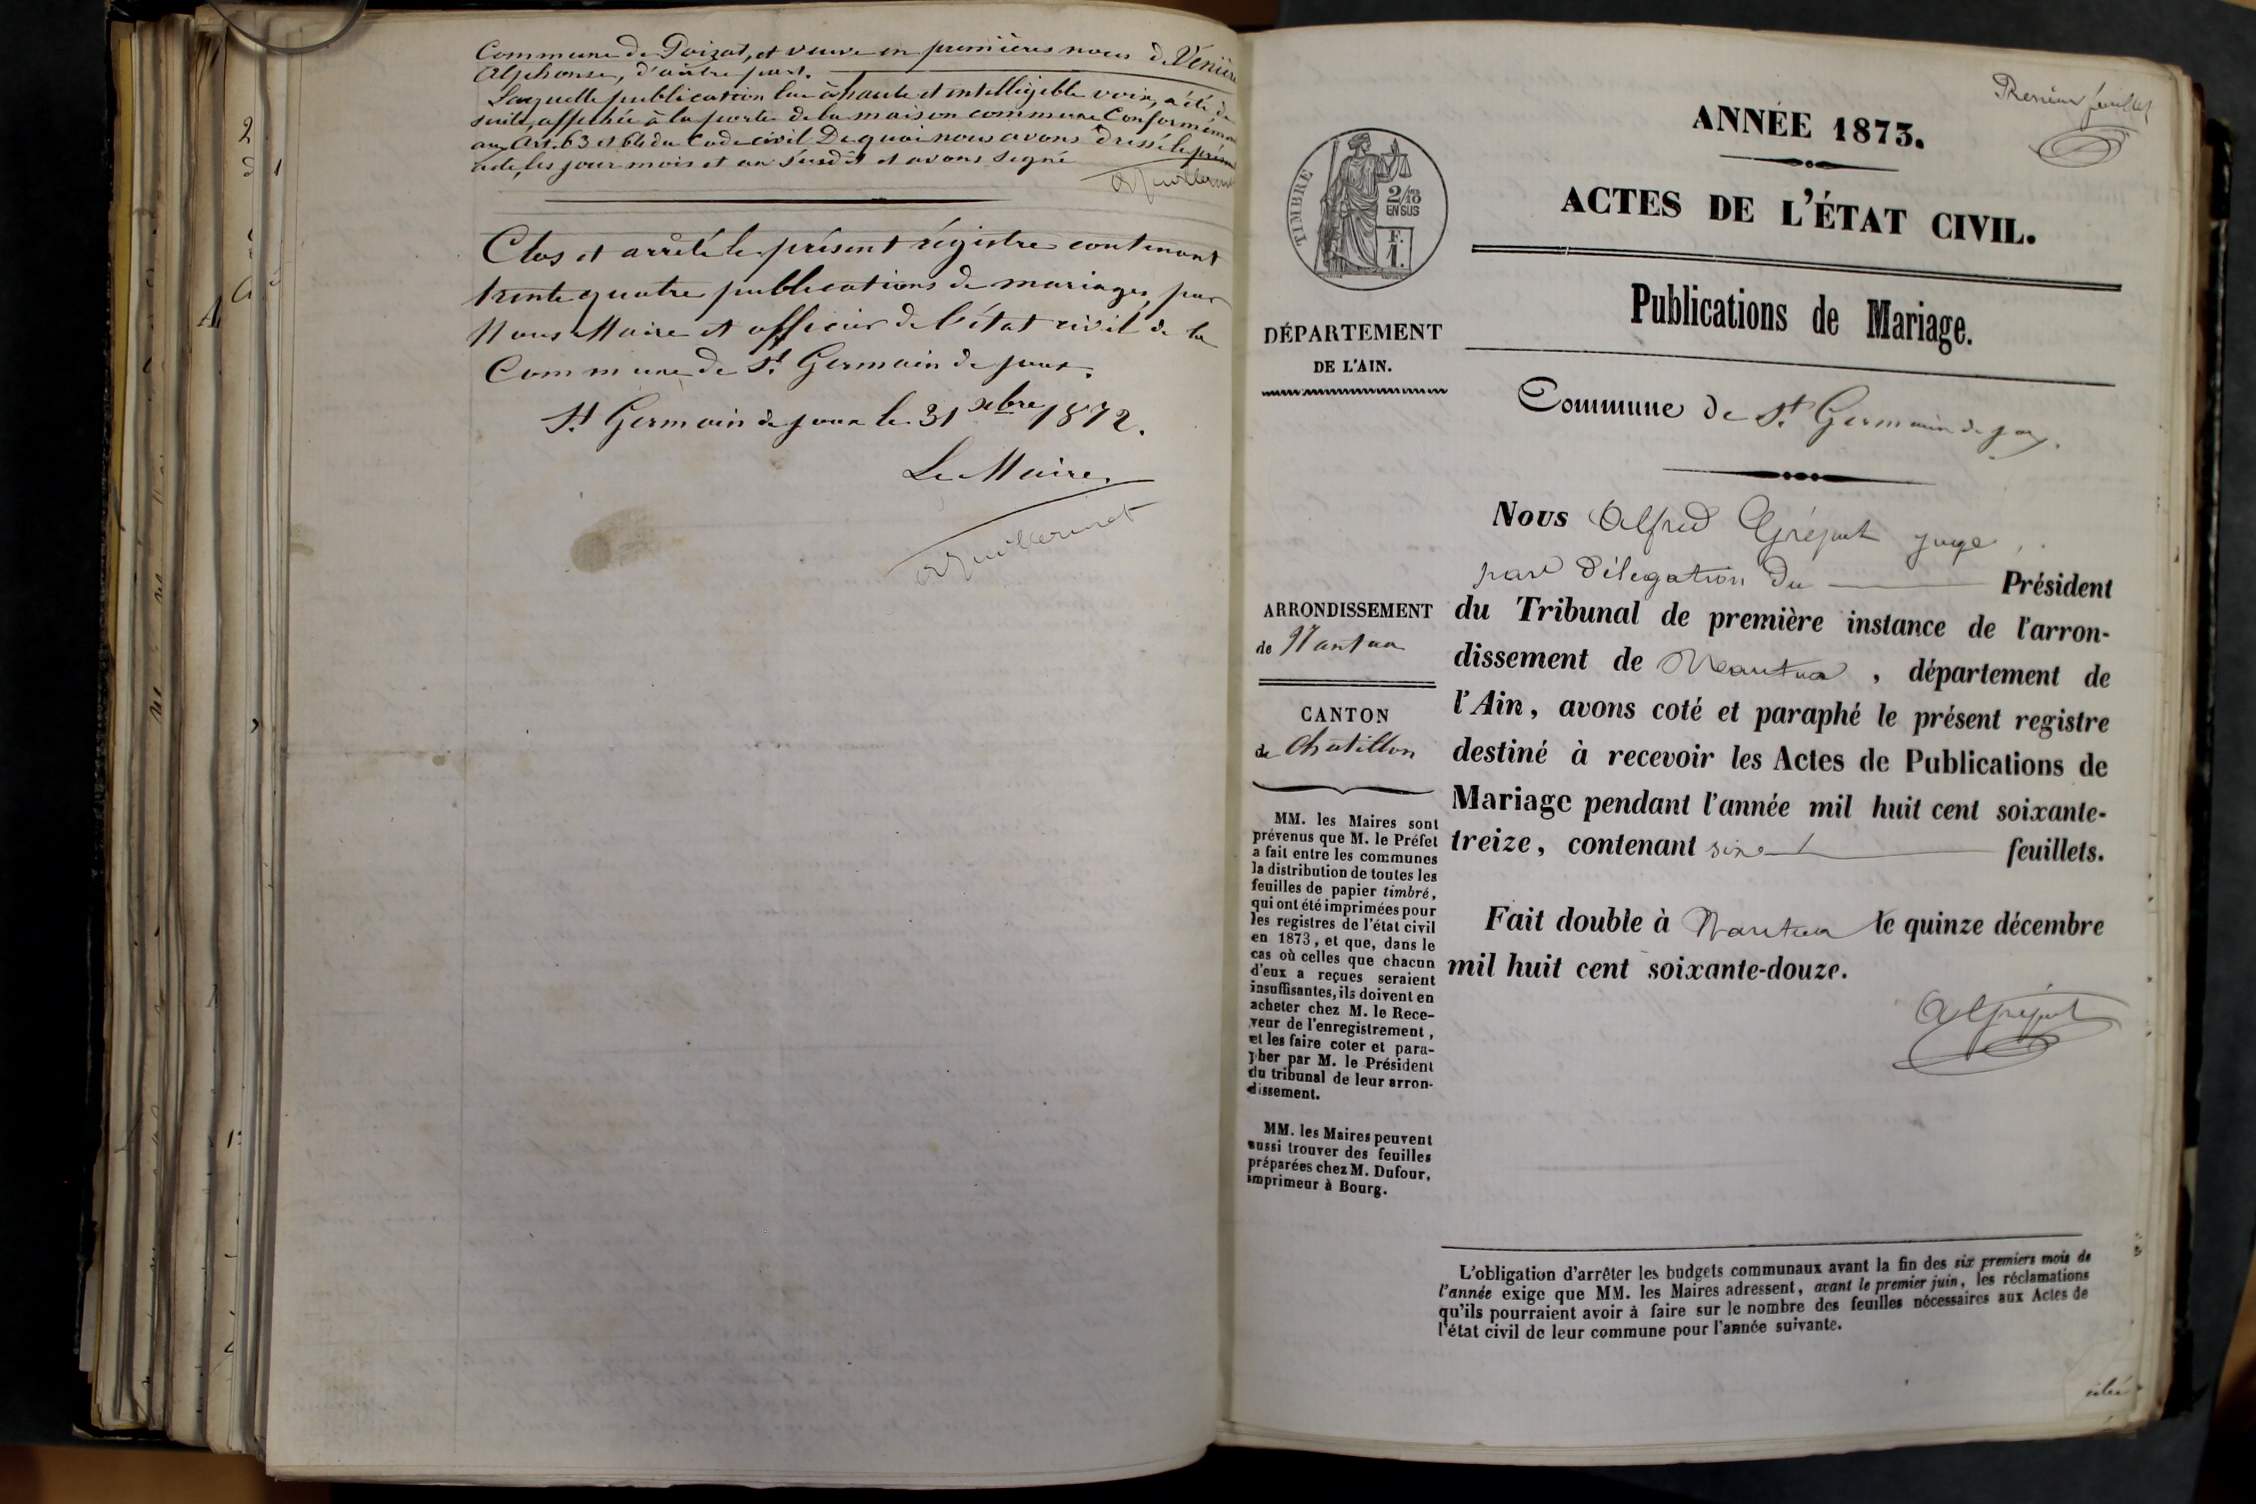 Commune de Poizat, et veuve en premières noces de Venière
Alphonse, d'autre part.
Laquelle publication lue à haute et intelligible voix, a été de
suite, affichée à la porte de la maison commune Conformément
aux Art. 63 et 64 du Code civil. De quoi nous avons dressé le présent
acte, les jour mois et an susdits et avons signé
Clos et arrêté le présent régistre contenant
trente quatre publications de mariages, par
Nous Maire et officier de l'état civil de la
Commune de St Germain de joux.
St Germain de joux le 31 xbre 1872.
Le Maire,
Premier feuillet
ANNÉE 1873.
ACTES DE L'ÉTAT CIVIL.
Publications de Mariage.
TIMBRE
2/10
EN SUS
F.
1.
DÉPARTEMENT
DE L'AIN.
Commune de St Germain de joux.
Nous Alfred juge
par délégation du Président
du Tribunal de première instance de l'arron-
dissement de Nantua, département de
l'Ain, avons coté et paraphé le présent registre
destiné à recevoir les Actes de Publications de
Mariage pendant l'année mil huit cent soixante-
treize, contenant six feuillets.
Fait double à Nantua le quinze décembre
mil huit cent soixante-douze.
ARRONDISSEMENT
de Nantua
CANTON
de Chatillon
MM. les Maires sont
prévenus que M. le Préfet
a fait entre les communes
la distribution de toutes les
feuilles de papier timbré,
qui ont été imprimées pour
les registres de l'état civil
en 1873, et que, dans le
cas où celles que chacun
d'eux a reçues seraient
insuffisantes, ils doivent en
acheter chez M. le Rece-
veur de l'enregistrement,
et les faire coter et para-
pher par M. le Président
du tribunal de leur arron-
dissement.
MM. les Maires peuvent
aussi trouver des feuilles
préparées chez M. Dufour,
imprimeur à Bourg.
L'obligation d'arrêter les budgets communaux avant la fin des six premiers mois de
l'année exige que MM. les Maires adressent, avant le premier juin, les réclamations
qu'ils pourraient avoir à faire sur le nombre des feuilles nécessaires aux Actes de
l'état civil de leur commune pour l'année suivante.